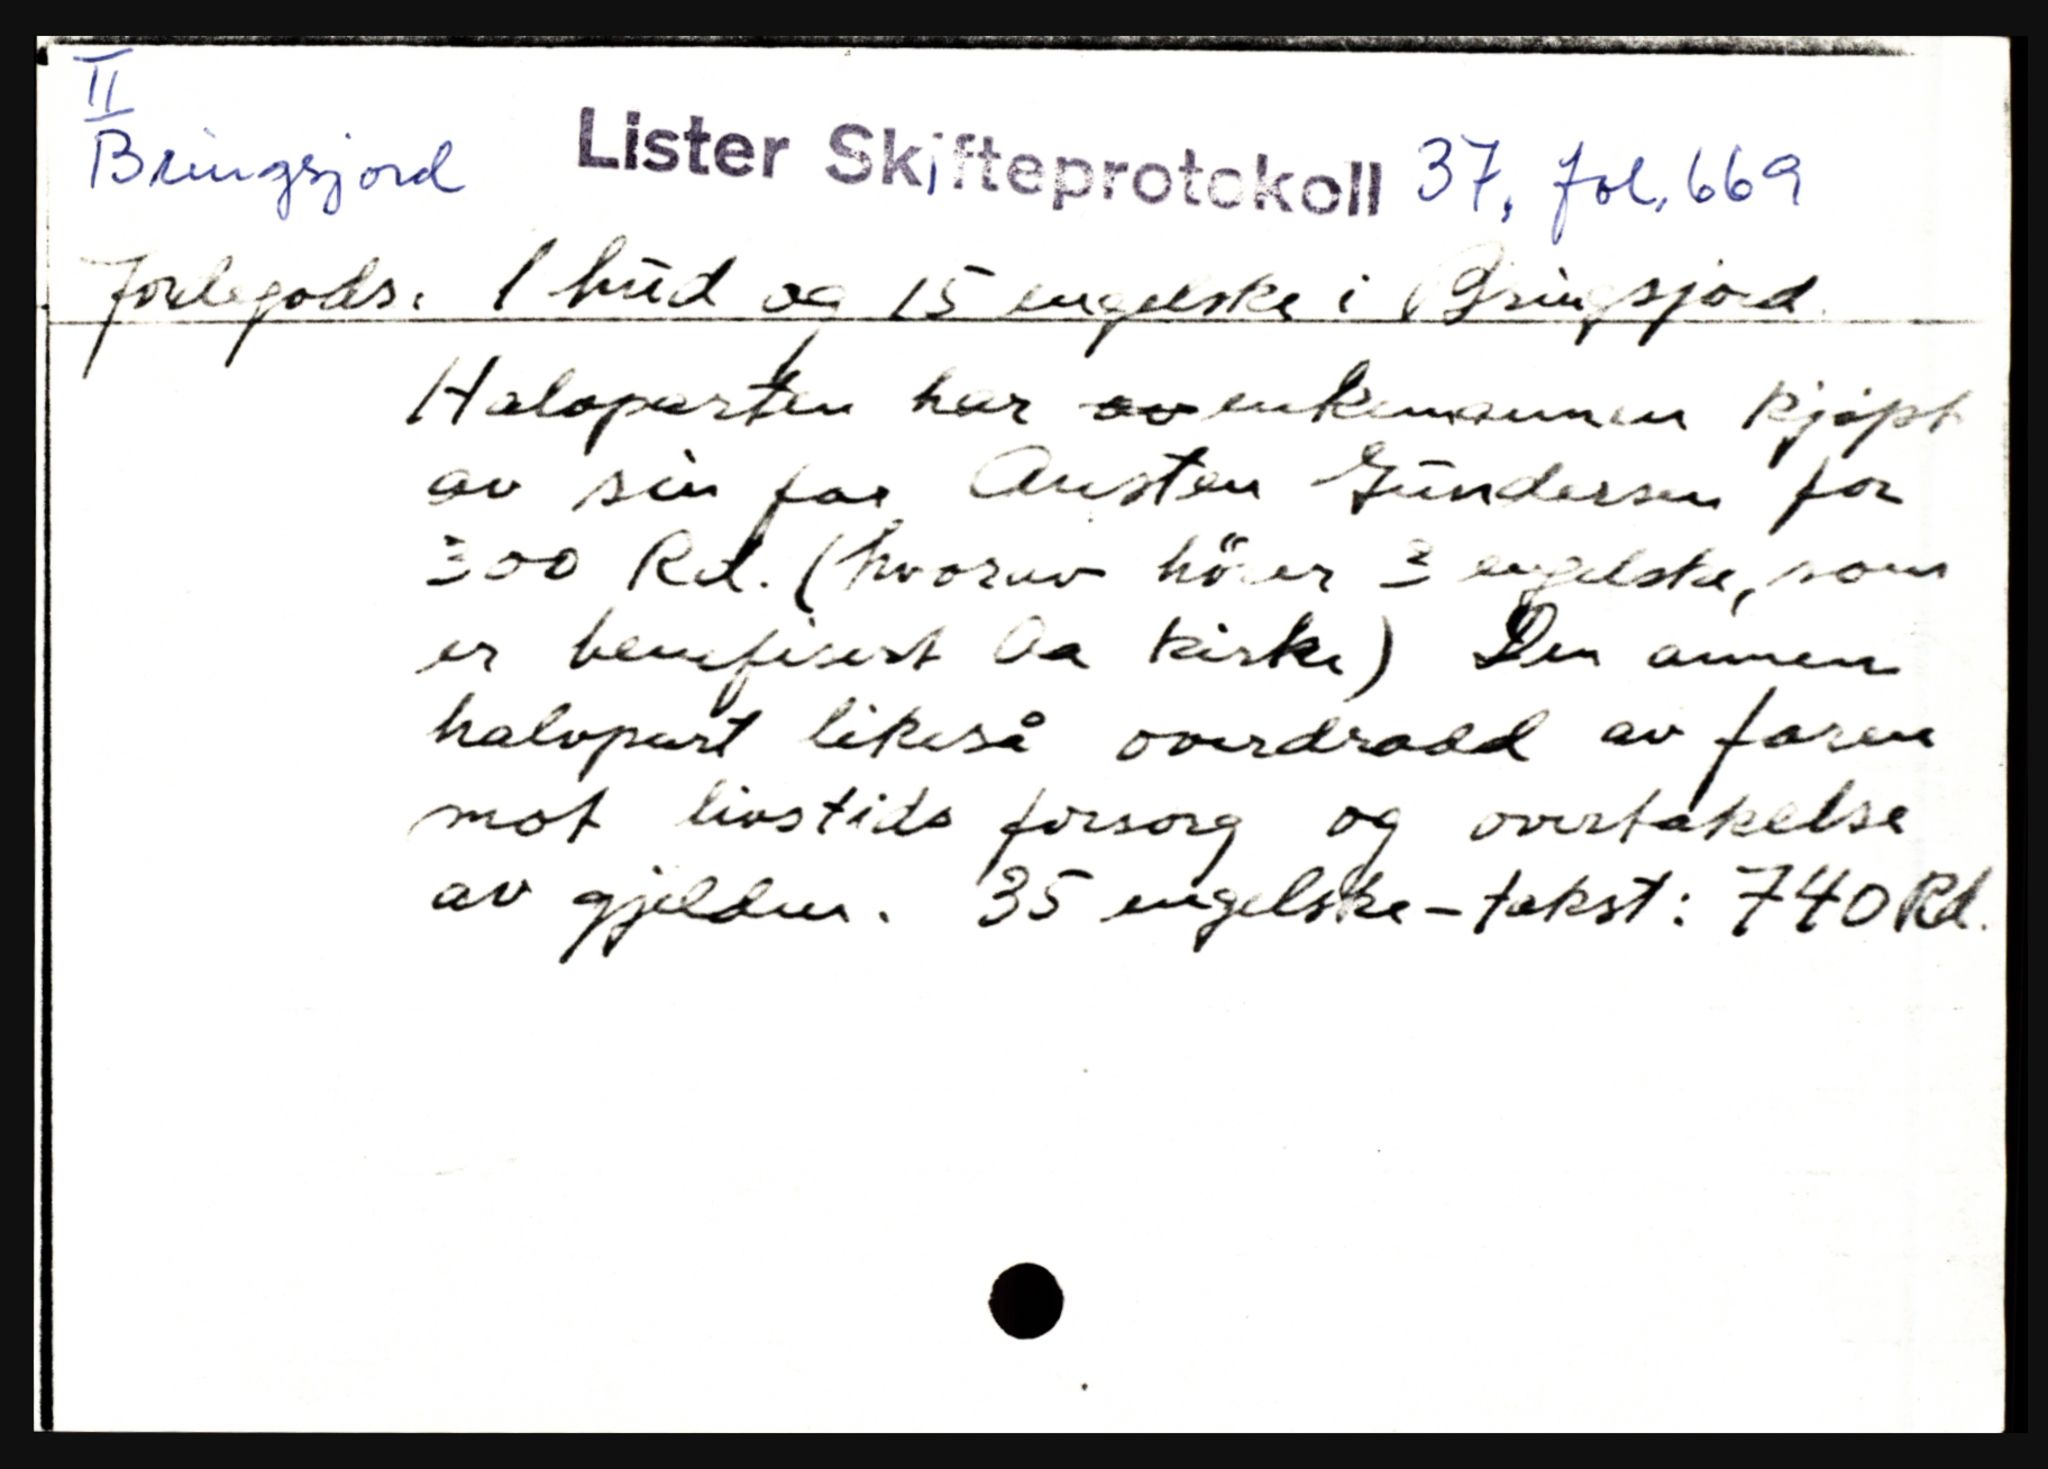 II
Bringsjord Lister Skifteprotokoll 37, fol. 669
Jordegods: 1 hud og 15 engelske i Bringsjord.
Halvparten har av enkemannen kjöpt
av sin far Austen Gundersen for
300 Rd. (hvorav hörer 3 engelske, som
er benefisert Aa kirke) Den annen
halvpart likeså overdradd av faren
mot livstids forsorg og overtakelse
av gjelden. 35 engelske – takst: 740 Rd.